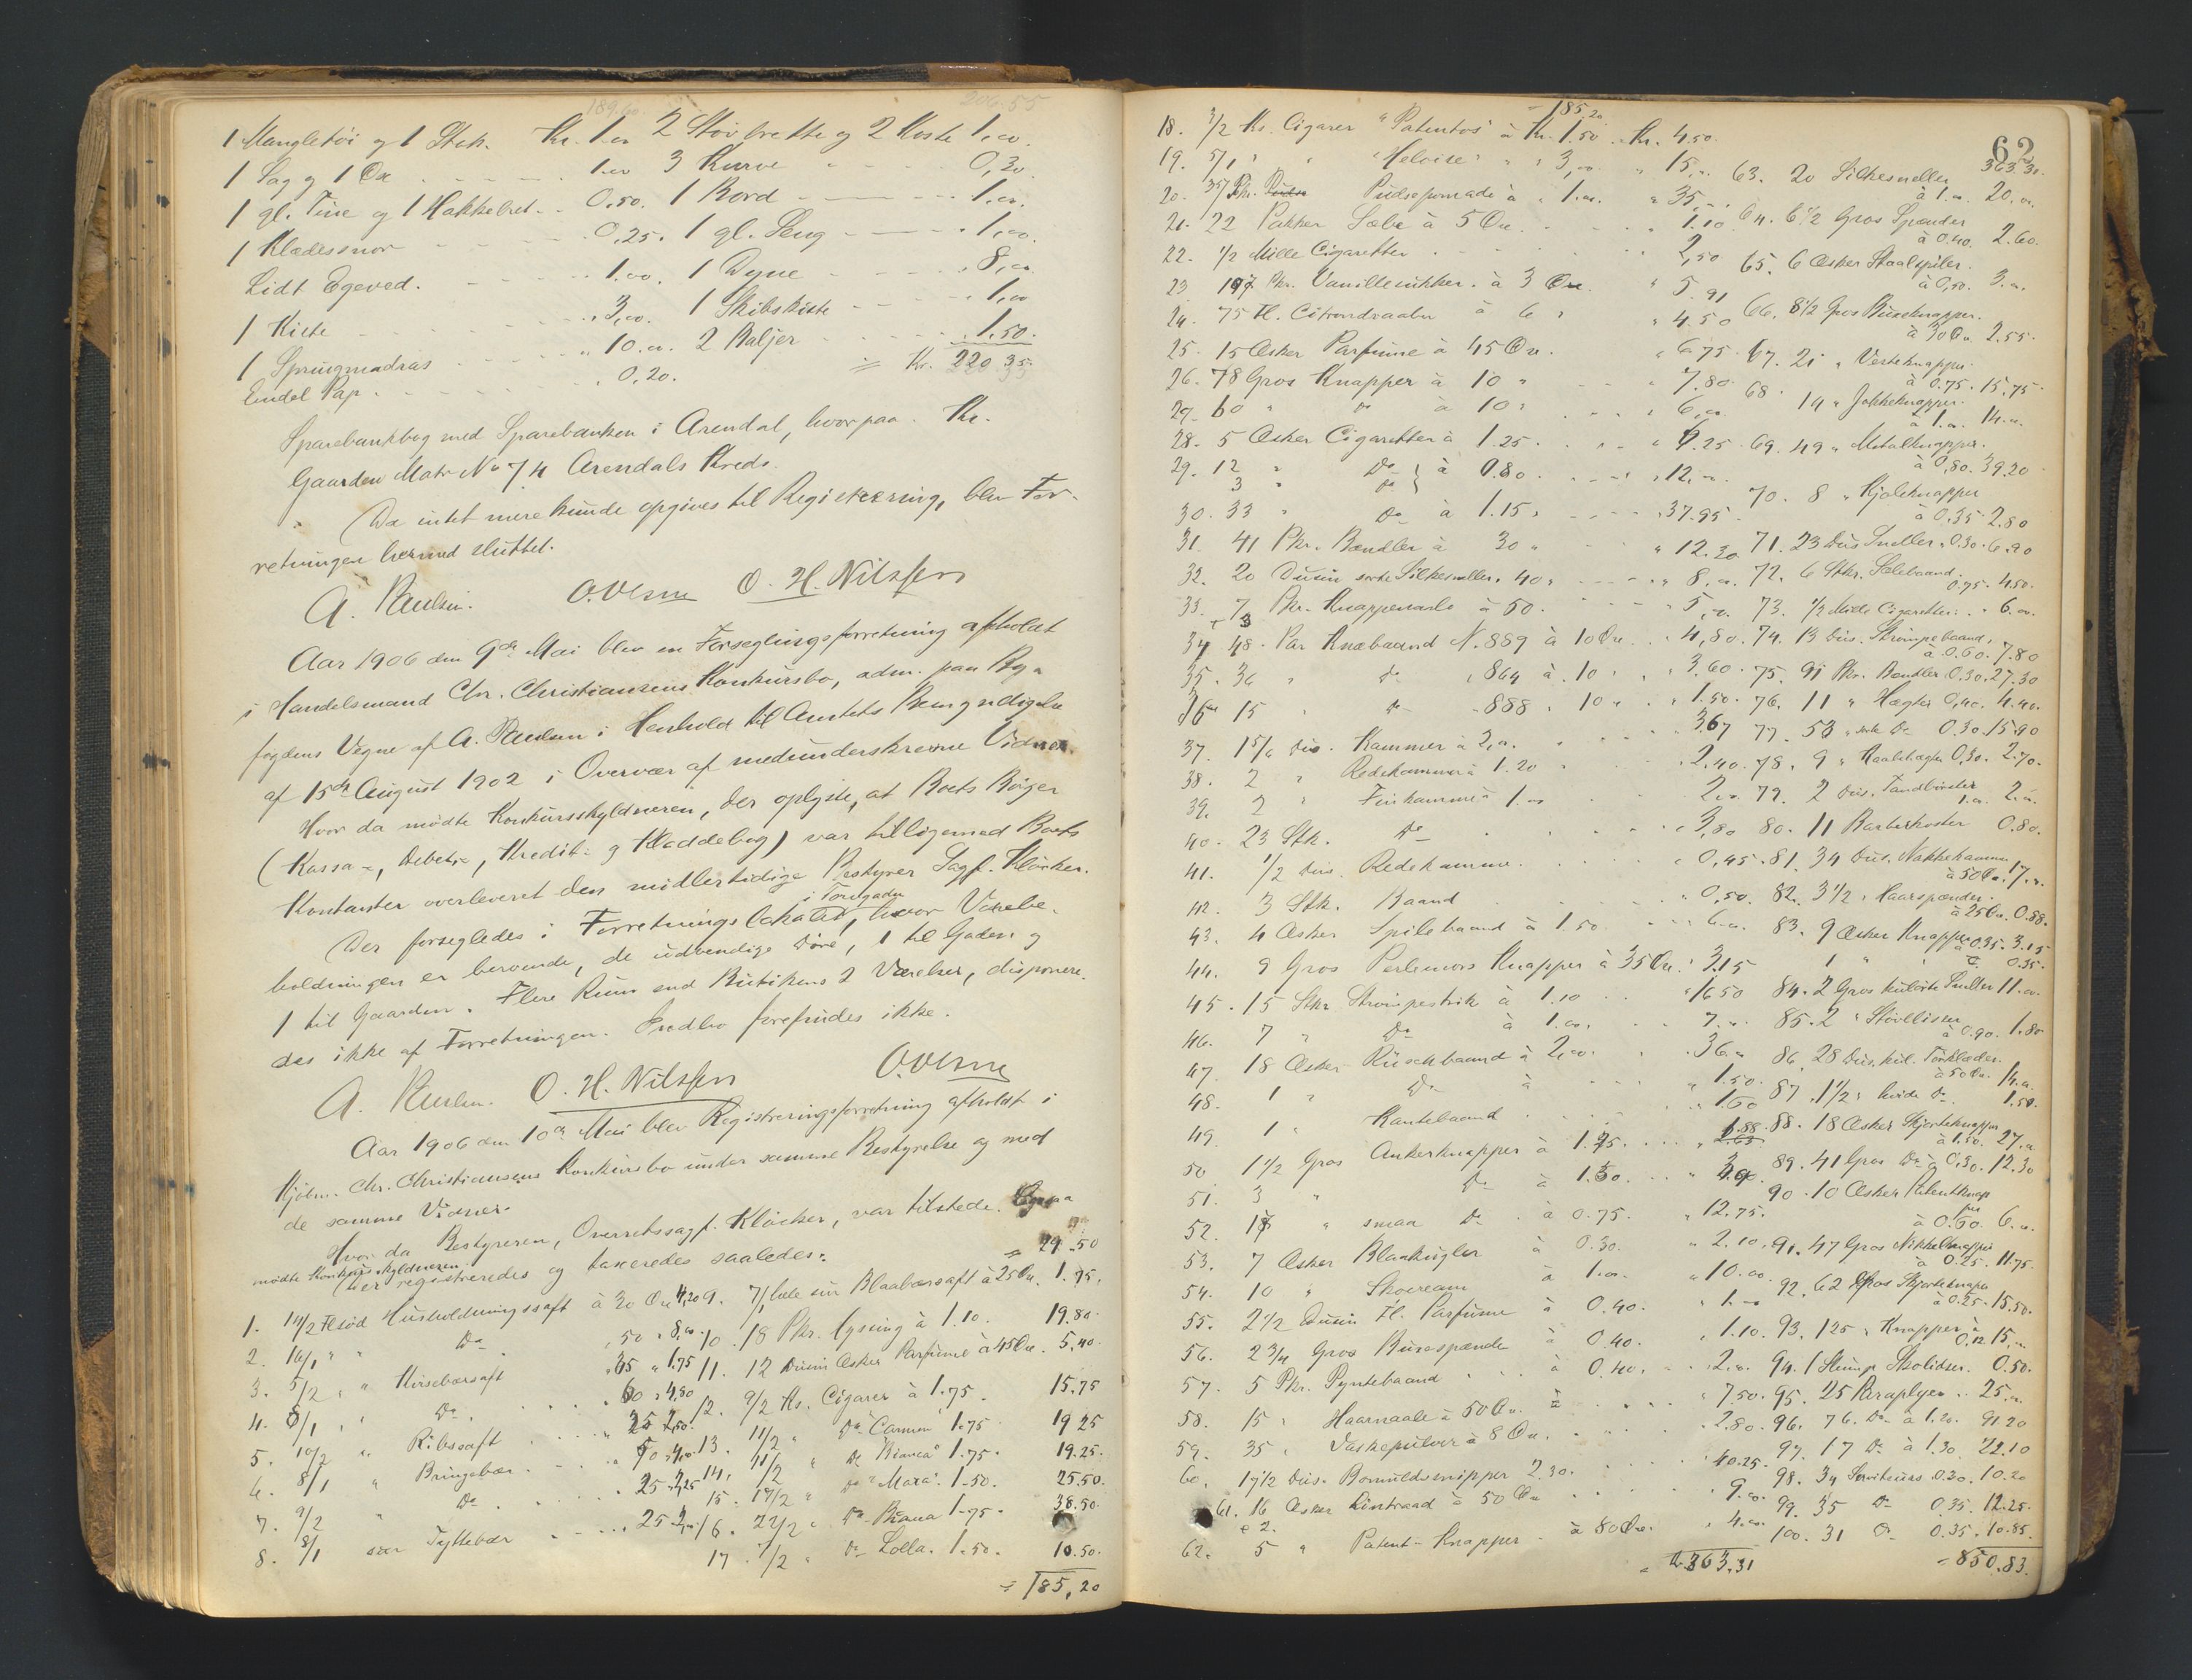 189.60. 206.55
1 Mangletöi og 1 Stek. Kr. 1.00 2 Stövbrette og 2 Koste 1.00.
1 Sag og 1 Öx 1.00 3 Kurve 0,30.
1 gl. Tine og 1 Hakkebret 0.50. 1 Bord 1.00.
1 Klædessnor 0,25. 1 gl. Seng 1,00.
Lidt Egeved. 1.00. 1 Dyne 8,00.
1 Kiste 3,00. 1 Skibskiste 1,00
1 Springmadras 10.00. 2 Baljer 1.50.
Endel Pap. 0,20. = Kr. 220 35.
Sparebankbog med Sparebanken i Arendal, hvorpaa Kr.
Gaarden Matr No 74 Arendals Kreds.
Da intet mere kunde opgives til Registrering, blev For-
retningen hermed sluttet.
A. Paulsen. O. H. Nilssen
Aar 1906 den 9de Mai blev en Forseglingsforretning afholdt
i Handelsmand Chr. Christiansens Konkursbo, adm. paa By-
fogdens Vegne af A. Paulsen i Henhold til Amtets Bemyndigelse
af 15de August 1902 i Overvær af medunderskrevne Vidner.
Hvor da mödte Konkursskyldneren, der oplyste, at Boets Böger
(Kassa-, Debet-, Kredit- og Kladdebog) var tilligemed Boets
Kontanter overleveret den midlertidige Bestyrer Sagf. Klöcker.
i Torvgaden
Der forsegledes i Forretningslokalet, hvor Varebe-
holdningen er beroende, de udvendige Döre, 1 til Gaden og
1 til Gaarden. Flere Rum end Butikens 2 Værelser, disponere-
des ikke af Forretningen. Indbo forefindes ikke.
A. Paulsen. O. H. Nilssen
Aar 1906 den 10de Mai blev Registreringsforretning afholdt i
Kjöbm. Chr. Christiansens Konkursbo under samme Bestyrelse og med
de samme Vidner.
Hvor da Bestyreren, Overretssagf. Klöcker, var tilstede. Ogsaa
mödte Konkursskyldneren.
Der registreredes og taxeredes saaledes: = 29.50
1. 14/2 Fl söd Husholdningssaft à 30 Öre 4,20 9. 7/1 hele sur Blaabærsaft à 25 Öre. 1.75.
2. 16/1 " " Do " 50 " 8,00 10. 18 Pkr. Lyssing à 1.10. 19.80.
3. 5/2 " " Kirsebærsaft " 35 " 1,75 11. 12 Dusin Æsker Parfume à 45 Öre. 5,40.
4. 8/1 " Do 60 " 4,80 12. 9/2 Ks. Cigarer à 1.75. 15.75
5. 10/2 " Ribssaft 25 2,50 13. 11/2 " Do "Carmen" 1.75 19 25
6. 8/1 " Bringebær 50 4,00 14. 11/2 " Do "Bianca" 1.75. 19.25.
7. 9/2 " Do 25 2,25 15. 17/2 " Do "Maxa". 1.50. 25.50.
8. 8/1 sur Tyttebær 25 2,00 16. 22/2 " Do Biana 1.75. 38.50.
17. 7/2 " Do Lolla. 1.50. 10.50.
= 185,20
62
= 185.20
18. 3/2 Ks. Cigarer "Patentos" à Kr. 1.50 Kr. 4.50.
19. 5/1 " " "Heloise" " " 3,00 " 15,00
20. 35 Pk. Pudsepomade à " 1.00. " 35,00
21. 22 Pakker Sæbe à 5 Öre. 1.10
22. 1/2 Mille Cigaretter 2,50
23 197 Pkr. Vanillesukker. à 3 Öre. " 5.91
24. 75 Fl. Citrondraaber à 6 " " 4.50
25. 15 Æsker Parfume à 45 Öre. " 6 75
26. 78 Gros Knapper à 10 " " 7.80
27. 60 " Do à 10 " " 6,00
28. 5 Æsker Cigaretter à 1.25. " 6.25
29. 12 " Do à 0.80. " 12,00.
3 " Do
30. 33 " Do à 1.15 " " 37.95
31. 41 Pkr. Bændler à 30 " " 12.30
32. 20 Dusin sorte Silkesneller. 40 " " 8,00.
33. 7 Pkr. Knappenaale à 50. " 5,00.
+ 3
34 48 Par Knæbaand N. 889 à 10 Öre " 4,80.
35. 36 " Do " 864 à 10 " " 3.60
36 15 " Do " 888 " 10 " " 1.50.
37. 1 5/6 Dus. Kammer à 2,00. 3.67
38. 2 " Redekammer à 1.20 " 2.40.
39. 2 " Finkamme à 1.00 " 2.00
40. 23 Stk. Do " 3,80
41. 1/2 Dus. Redekamme. " 0,45.
42. 3 Stk. Baand " 0,50.
43. 4 Æsker Spilebaand à 1.50 " 6.00.
44. 9 Gros Perlemors Knapper à 35 Öre. " 3.15
45. 15 Stkr Strömpestrik à 1.10 " 16 50
46. 7 " Do à 1.00. " 7.00
47 18 Æsker Ruschbaand à 2,00. " 36.00
48. 1 " Do à " 1.50.
49. 1 " Kantebaand " 1.50
50 1 1/2 Gros Ankerknapper à 1.25. " 1.88
51. 3 " Do à 1.30.
52. 17 " smaa Do à 0.75. " 12.75.
53. 7 Æsker Blankugler à 0.30. " 2.10
54. 10 " Skocream à 1.00. " 10.00
55. 2 1/2 Dusin Fl. Parfume à 0.40. " 1.00
56. 2 3/4 Gros Buxespænde à 0.40. " 1.10.
57. 5 Pkr. Pyntebaand à 0.40. " 2.00.
58. 15 " Haarnaale à 50 Öre. à " 7.50.
59. 35 " Vaskepulver à 8 Öre. " 2.80.
60. 17 1/2 Dus. Bomuldssnipper 2.30. " 40.25.
61. 16 Æsker Lintraad à 50 Öre 9.00.
+ 2.
62. 5 " Patent-Knapper à 80 Öre. " 4.00
= Kr. 363.31
363.31.
63. 20 Silkesneller
à 1.00. 20.00.
64. 6 1/2 Gros Spænder
à 0.40. 2.60.
65. 6 Æsker Staalspiler.
à 0,50. 3.00.
66. 8 1/2 Gros Buxeknapper.
à 30 Öre 2.55.
67. 21 " Vesteknapper
à 0.75. 15.75.
68. 14 " Jakkeknapper.
à 1.00. 14.00.
69. 49 " Metalknapper.
à 0,80. 39.20
70. 8 " Kjoleknapper
à 0,35 2.80
71. 23 Dus Sneller. 0.30. 6.90
72. 6 Stkr. Selebaand.
0.75. 4.50.
73. 1/2 Mille Cigaretter. " 6.00.
74. 13 Dus. Strömpebaand,
à 0.60. 7.80
75. 91 Pkr. Bændler. 0.30. 27.30
76. 11 " Hægter 0,40. 4.40.
77. 53 " sorte Do 0.30. 15.90
78. 9 " Kaabehægter 0.30. 2.70.
79. 2 Dus. Tandbörster
1.00. 2.00.
80. 11 Barberkoster 0.80.
81. 34 Dus. Nakkekamme
à 50 Öre. 17.00.
82. 3 1/2 " Haarspænder.
à 25 Öre. 0.88.
83. 9 Æsker Knapper à 0.35. 3.15
1 " " 0.35.
84. 2 Gros kulörte Sneller 11.00.
85. 2 " Stövllisser
à 0.90. 1.80
86. 28 Dus. kul. Törklæder.
à 50 Öre. 14.00
87. 1 1/2 " hvide Do 1.50.
88. 18 Æsker Skjorteknapper
à 1.50. 27.00
89. 41 Gros Do à 0,30. 12.30
90. 10 Æsker Patentknap
per
à 0.60. 6.00.
91. 47 Gros Nikkelknapper
à 0.25. 11.75.
92. 62 Gros Skjorteknapper
à 0.25. 15.50.
93. 125 " Knapper à
0.12 15,00
94. 1 Slump Skolidser. 0.50.
95. 25 Paraplyer 25.00
96. 76. Do à 1.20. 91.20
97. 17 Do à 1.30. 22.10
98. 34 Serviteurs 0.30. 10.20
99. 35 Do 0.35. 12.25.
100. 31 Do 0.35. 10.85.
= 850.83.